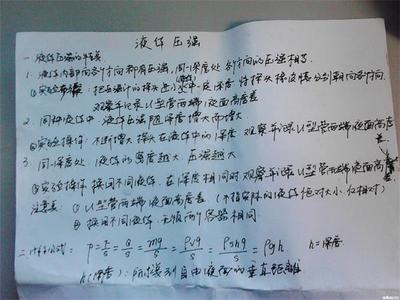 液体压强
一、液体压强的特点
1. 液体内部向各个方向都有压强,同一深度处各个方向的压强相等。
①实验操作:把压强计的探头 水中一定深度 将探头 分别朝向各个方向.
观察并记录U型管两端液面高度差
2. 同种液体中 液体压强随深度增大而增大
①实验操作:不断增大探头在液体中的深度 观察并记录U型管两端液面高度差.
3. 同一深度处 液体的密度越大 压强越大
①实验操作 换用不同液体,在深度相同时观察并记录U型管两端液面高度差
注意: ① U型管两端液面高度差(不指实际的液体 绝对大小,仅相对)
② 换用不同液体,
二、计算公式: P = F/S = G/S = mg/S = ρVg/S = ρShg/S = ρgh h=深度.
h(深度): 所 到自由液面的垂直距离